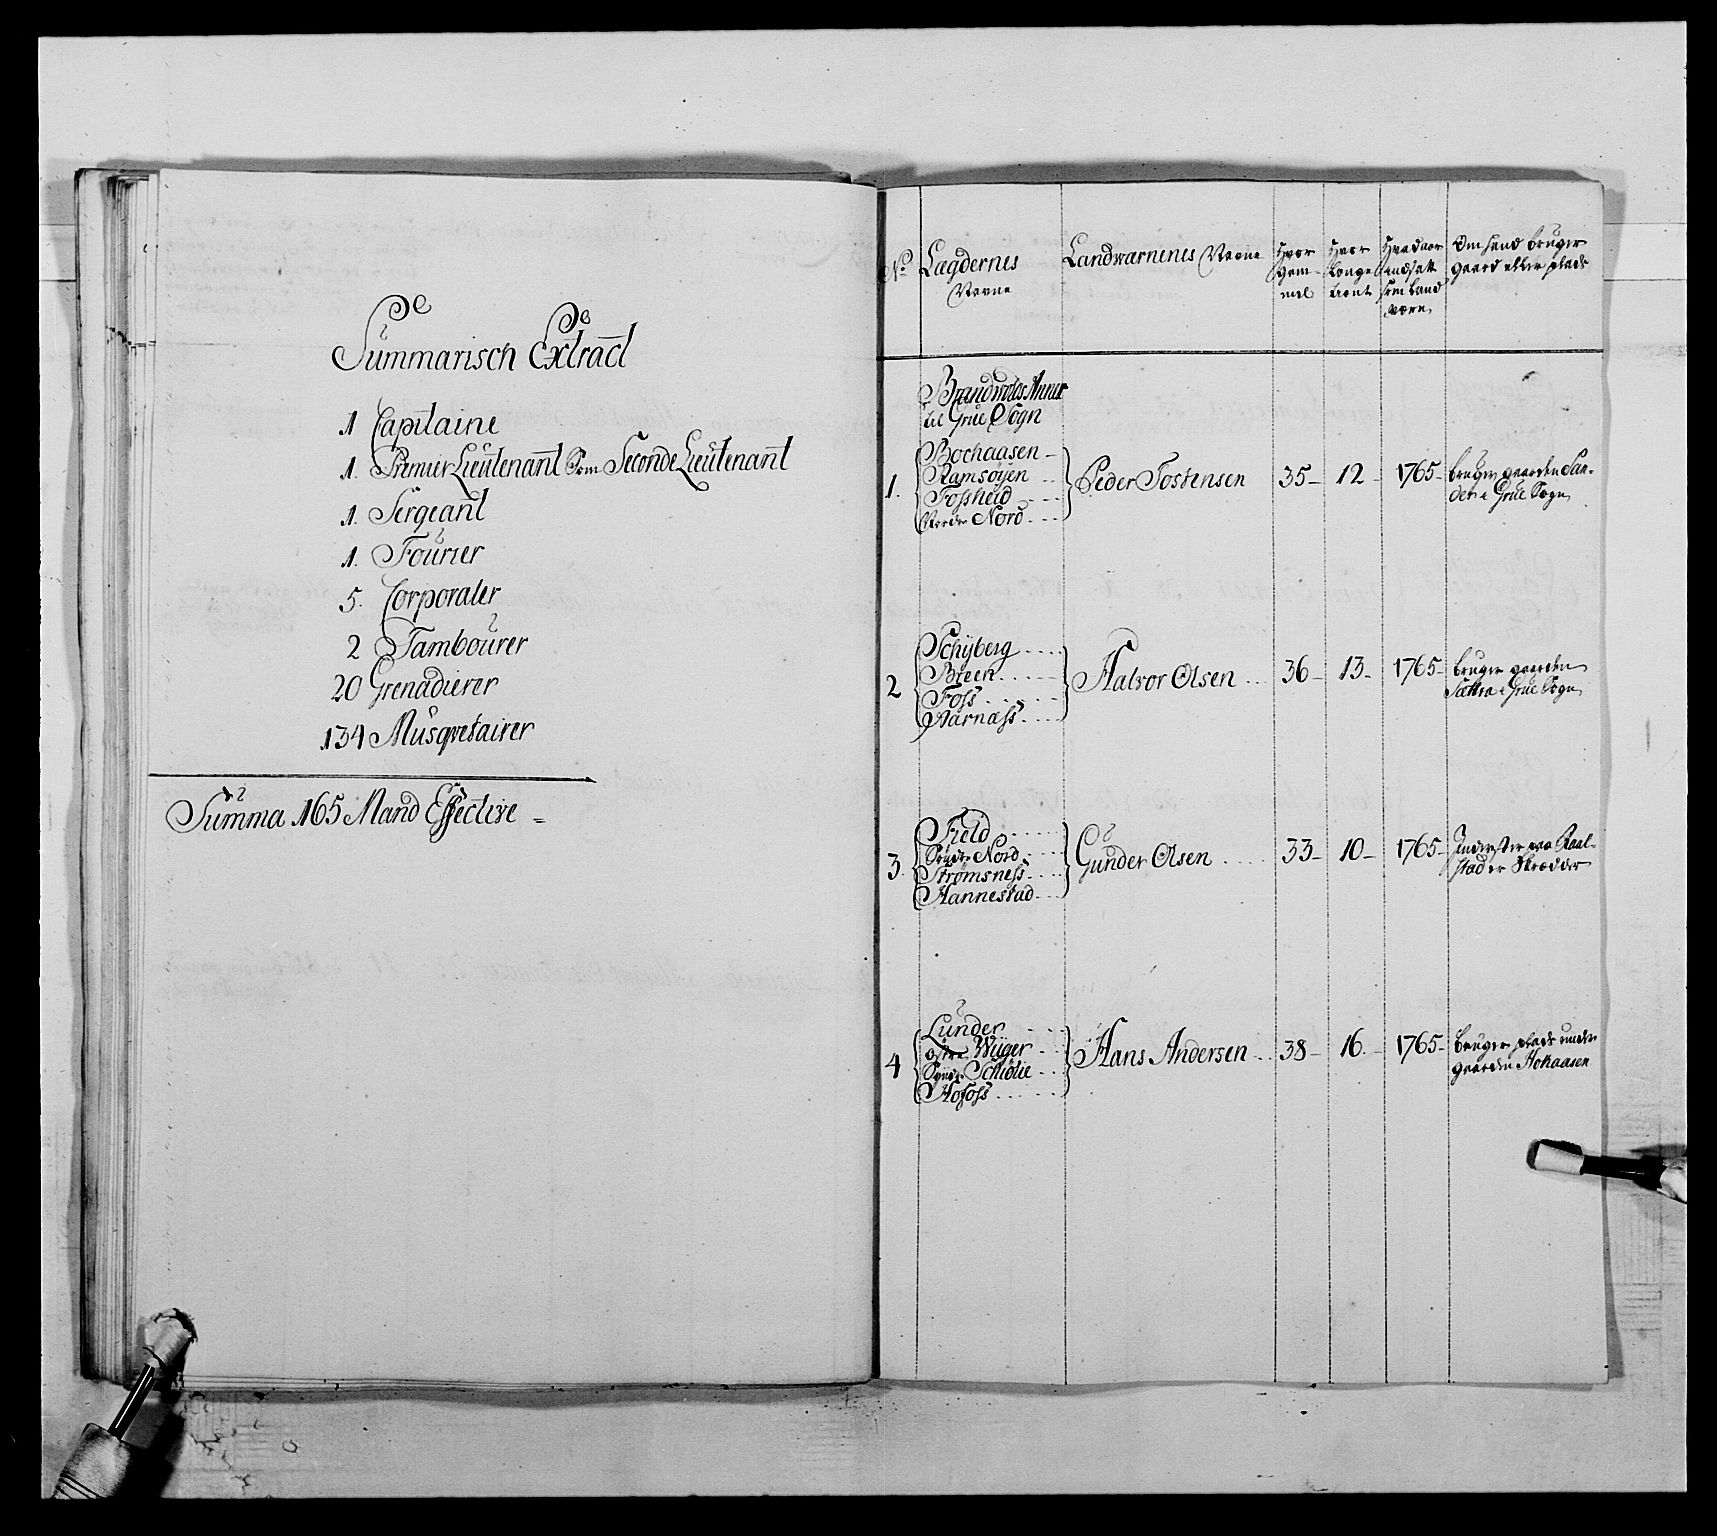 Summarisch Extract
1 Capitaine
1. Premier Lieutenant Som Seconde Lieutenant
1. Sergeant
1. Fourier
5. Corporaler
2 Tambourer
20 Grenadierer
134 Musqvetairer
Summa 165 Mand Effective =
No. Lægdernes Navne
Landværnenes Navne
Hvor gammel
Hvor Længe tient
Hvad aar indsatt som Land værn
Om hand bruger gaard eller plads
Brandvolds Annex
til Grue Sogn
1. Bochaasen
Ramsøÿen
Fossheid
Nordre Nord
Peder Tostensen 35 12 1765
bruger gaarden San-
der i Grue Sogn
2 Schÿberg
Breen
Foss
Aarnæss
Halvor Olsen 36 13 1765
bruger gaarden
Sættra i Grue Sogn
3. Field
Søndr Nord
Strømsness
Hannestad
Gunder Olsen 33 10 1765
Inderster paa Kaal-
stad er Skrædder
4 Lunder
østre Wiiger
Søndr Schiølie
Hofoss
Hans Andersen 38 16 1765
bruger plads under
gaarden Hokaasen